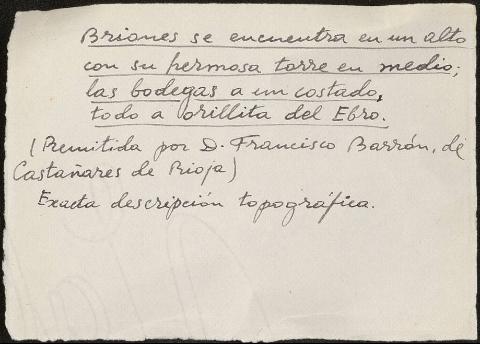 Briones se encuentra en un alto
con su hermosa torre en medio;
las bodegas a un costado,
todo a orillita del Ebro.
(Remitida por D. Francisco Barrón, de
Castañares de Rioja)
Exacta descripción topográfica.